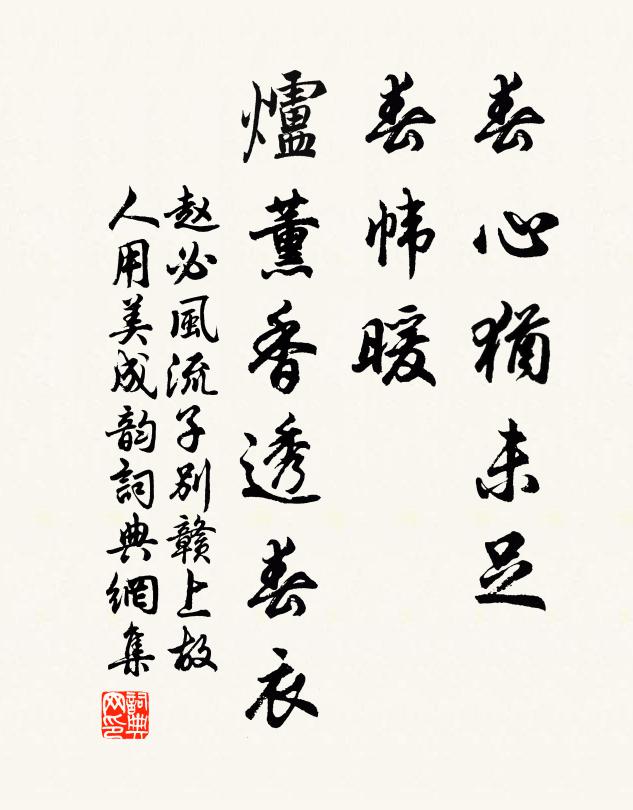 春心猶未足
春幃暖
爐薰香透春衣
赵必風流子别赣上故
人用美成韵詞典網集
詞典網印